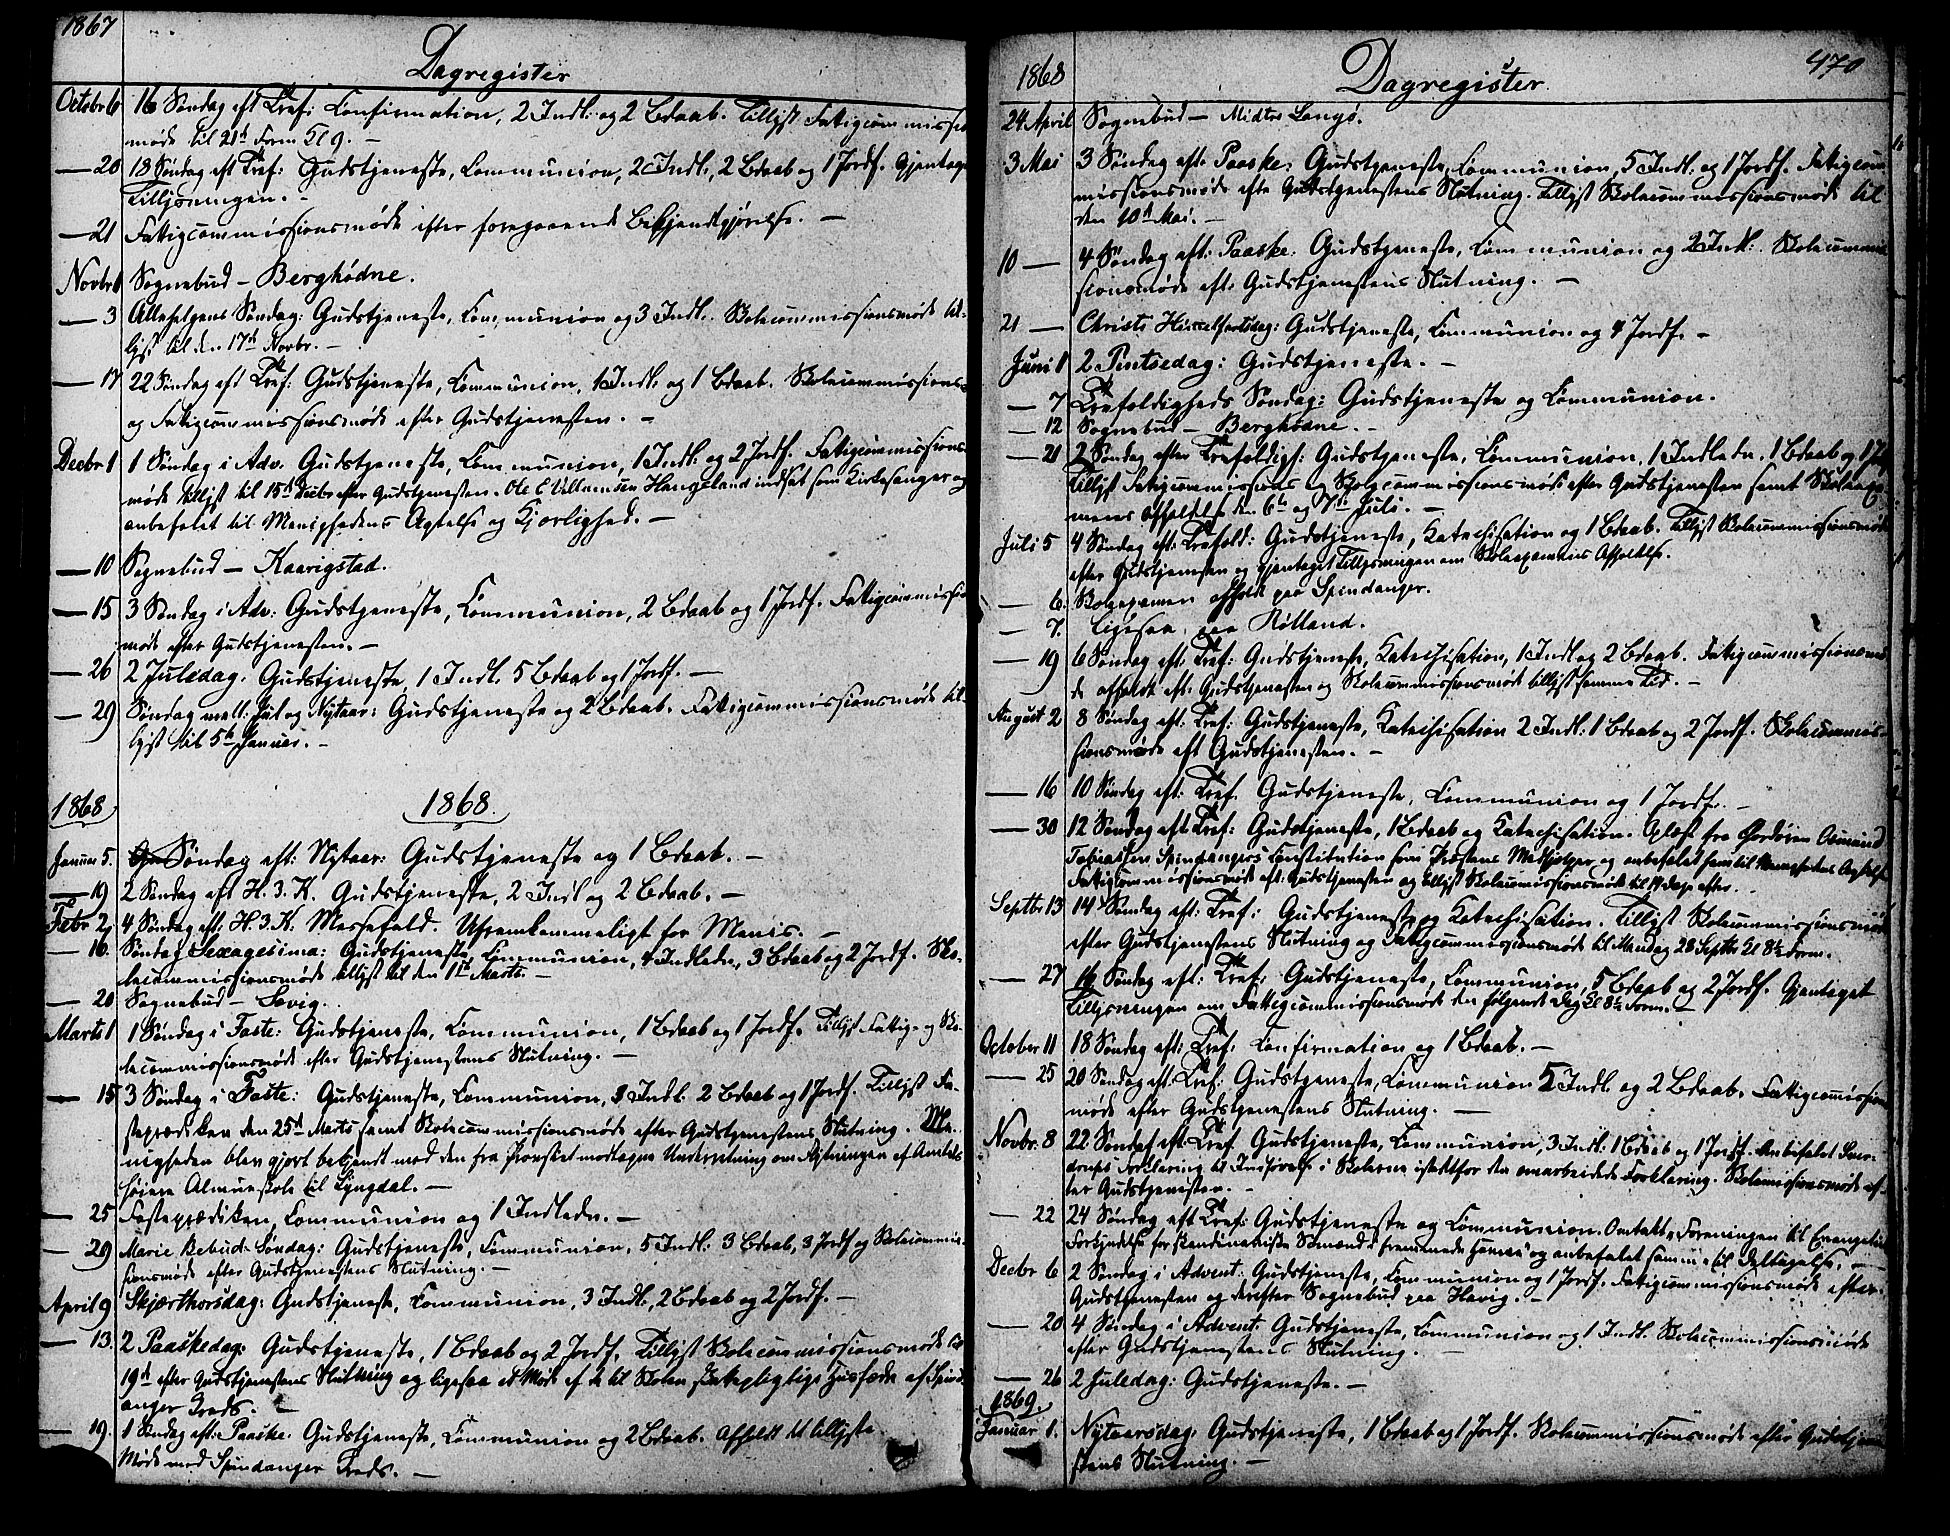 1867
Dagregister
Octobr 6 16 Søndag eft Tref: Confirmation, 2 Indl: og 2 Bdaab. Tillyst Fatigcommissions
møde til 21d Form Kl 9. —
— 20 18 Søndag eft Tref: Gudstjeneste, Communion, 2 Indl:, 2 Bdaab og 1 Jordf. Gjentaget
Tillysningen. —
— 21 Fattigcommissionsmøde efter foregaaende Bekjendtgjørelse. —
Novbr 1 Sognebud — Berghødne.
— 3 Allehelgens Søndag: Gudstjeneste, Communion og 3 Indl. Skolecommissionsmøde til-
lyst til den 17d Novbr. —
— 17 22 Søndag eft Tref: Gudstjeneste, Communion, 1 Indl: og 1 Bdaab. Skolecommissions-
og Fattigcommissionsmøde efter Gudstjenesten. —
Decbr 1 1 Søndag i Adv. Gudstjeneste, Communion, 1 Indl: og 2 Jordf. Fattigcommissions-
møde tillyst til 15d Decbr efter Gudstjenesten. Ole C Villumsen Haugeland indsat som Kirkesanger og
anbefalet til Menighedens Agtelse og Kjærlighed. —
— 10 Sognebud — Kaarigstad.
— 15 3 Søndag i Adv: Gudstjeneste, Communion, 2 Bdaab og 1 Jordf. Fattigcommissions
møde efter Gudstjenesten. —
— 26 2 Juledag. Gudstjeneste, 1 Indl. 5 Bdaab og 1 Jordf. —
— 29 Søndag mell: Jul og Nytaar: Gudstjeneste og 2 Bdaab. Fattigcommissionsmøde til-
lyst til 5te Januar. —
1868 1868.
Januar 5. Søndag eft: Nytaar: Gudstjeneste og 1 Bdaab. —
— 19 2 Søndag eft H. 3. K. Gudstjeneste, 2 Indl og 2 Bdaab. —
Febr 2 4 Søndag eft: H. 3. K. Messefald. Ufremkommeligt for Menis. —
— 16. Søndag Sexagesima: Gudstjeneste, Communion, 4 Indledn, 3 Bdaab og 2 Jordf. Sko-
lecommissionsmøde tillyst til den 1ste Marts. —
— 20 Sognebud — Sævig.
Marts 1 1 Søndag i Faste: Gudstjeneste, Communion, 1 Bdaab og 1 Jordf. Tillyst Fattig- og Sko-
lecommissionsmøde efter Gudstjenestens Slutning. —
— 15 3 Søndag i Faste: Gudstjeneste, Communion, 3 Indl: 2 Bdaab og 1 Jordf. Tillyst Fa-
steprædiken den 25d Marts samt Skolecommissionsmøde efter Gudstjenestens Slutning. Me-
nigheden blev gjort bekjendt med den fra Provstiet modtagne Underretning om Flytningen af Amtets
høiere Almueskole til Lyngdal. —
— 25 Fasteprædiken, Communion og 1 Indledn. —
— 29 Mariæ Bebud: Søndag: Gudstjeneste, Communion, 5 Indl: 3 Bdaab, 3 Jordf og Skolecommis-
sionsmøde efter Gudstjenestens Slutning. —
April 9 Skjærthorsdag: Gudstjeneste, Communion, 3 Indl:, 2 Bdaab og 2 Jordf. —
— 13. 2 Paaskedag: Gudstjeneste, 1 Bdaab og 2 Jordf. Tillyst Skolecommissionsmøde til
19d efter Gudstjenestens Slutning og ligesaa et Møde af de til Skolen skattepligtige Husfædre af Spind-
anger Kreds. —
— 19. 1 Søndag eft: Paaske: Gudstjeneste, Communion og 2 Bdaab. Afholdt det tillyste
Møde med Spindanger Kreds. —
1868 Dagregister. 470
24 April Sognebud — Midtre Langø.
3 Mai 3 Søndag eft: Paaske. Gudstjeneste, Communion, 5 Indl: og 1 Jordf. Fattigcom-
missionsmøde efter Gudstjenestens Slutning. Tillyst Skolecommissionsmøde til
den 10d Mai. —
10 — 4 Søndag eft: Paaske. Gudstjeneste, Communion og 2 Indl: Skolecommis-
sionsmøde eft: Gudstjenestens Slutning. —
21 — Christi Himmelfartsdag: Gudstjeneste, Communion og 4 Jordf. —
Juni 1 2 Pintsedag: Gudstjeneste. —
— 7 Trefoldigheds Søndag: Gudstjeneste og Communion.
— 12 Sognebud — Berghødne. —
— 21 2 Søndag efter Trefoldigh: Gudstjeneste, Communion, 1 Indledn. 1 Bdaab og 1 Jordf
Tillyst Fattigcommissions og Skolecommissionsmøde efter Gudstjenesten samt Skoleexa-
mens Afholdelse den 6te og 7de Juli. —
Juli 5 4 Søndag eft: Trefold: Gudstjeneste, Katechisation og 1 Bdaab. Tillyst Skolecommissionsmøde
efter Gudstjenesten og gjentaget Tillysningen om Skoleexamens Afholdelse.
— 6. Skoleexamen afholdt paa Spindanger.
— 7. Ligesaa paa Rølland.
— 19 6 Søndag eft: Tref: Gudstjeneste, Katechisation, 1 Indl og 2 Bdaab. Fattigcommissionsmø-
de afholdt eft: Gudstjenesten og Skolecommissionsmøde tillyst samme Tid. —
August 2 8 Søndag eft: Tref: Gudstjeneste, Katechisation 2 Indl: 1 Bdaab og 2 Jordf. Skolecommis-
sionsmøde eft Gudstjenesten. —
— 16 10 Søndag eft: Tref. Gudstjeneste, Communion og 1 Jordf. —
— 30 12 Søndag eft Tref: Gudstjeneste, 1 Bdaab og Katechisation. Oplæst fra Prædikestolen Osmund
Tobiassen Spindangers Constitution som Præstens Medhjelper og anbefalet ham til Menighedens Agtelse
Fattigcommissionsmøde eft: Gudstjenesten og tillyst Skolecommissionsmøde til 14 Dage efter. —
Septbr 13 14 Søndag eft: Tref: Gudstjeneste og Katechisation. Tillyst Skolecommissionsmøde
efter Gudstjenestens Slutning og Fattigcommissionsmøde til Mandag 28 Septbr Kl 8½ Form.
— 27 16 Søndag eft: Tref: Gudstjeneste, Communion, 5 Bdaab og 2 Jordf. Gjentaget
Tillysningen om Fattigcommissionsmøde den følgende Dag Kl 8½ Form. —
October 11 18 Søndag eft: Tref: Confirmation og 1 Bdaab. —
— 25 20 Søndag eft. Tref: Gudstjeneste, Communion 5 Indl. og 2 Bdaab. Fattigcommissions
møde efter Gudstjenestens Slutning. —
Novbr. 8 22 Søndag eft Tref. Gudstjeneste, Communion, 3 Indl: 1 Bdaab og 1 Jordf. Anbefalet Sver-
drups Forklaring til Indførelse i Skolerne istedetfor den omarbeidede Forklaring. Skolecommissionsmøde ef-
ter Gudstjenesten. —
— 22 24 Søndag eft Tref: Gudstjeneste og Communion. Omtalt „Foreningen til Evangeliets
Forkyndelse for skandinaviske Sømænd i fremmede Havne" og anbefalet samme til Deltagelse. —
Decbr 6 2 Søndag i Advent: Gudstjeneste, Communion og 1 Jordf. Fattigcommissionsmøde efter
Gudstjenesten og derefter Sognebud paa Hævig. —
— 20 4 Søndag i Advent Gudstjeneste, Communion og 1 Indl. Skolecommissionsmøde
efter Gudstjenestens Slutning. —
— 26 2 Juledag: Gudstjeneste. —
1869.
Januar 1. Nytaarsdag: Gudstjeneste, 1 Bdaab og 1 Jordf. Skolecommissionsmøde efter Gudstjene-
stens Slutning. —